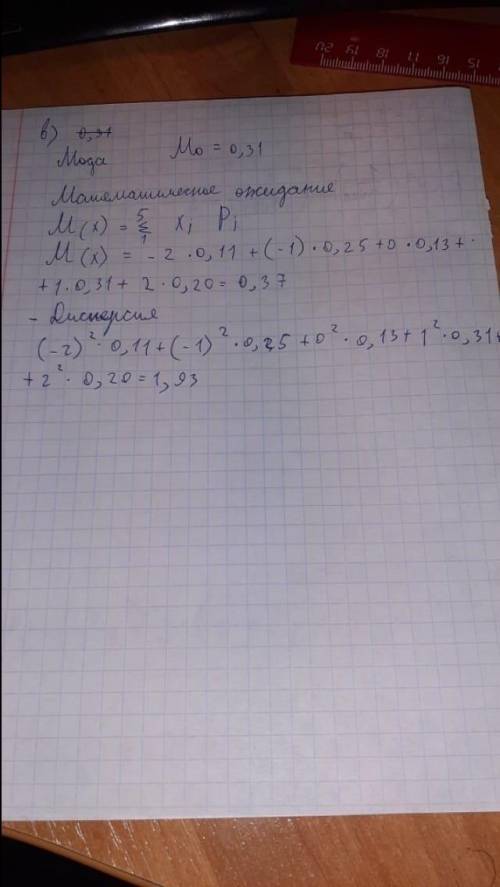 в) 0,31
Мода M₀ = 0,31
Математическое ожидание
M(x) = 5 Σ 1 xᵢ Pᵢ
M(x) = - 2 · 0,11 + (-1) · 0,25 + 0 · 0,13 +
+ 1 · 0,31 + 2 · 0,20 = 0,37
- Дисперсия
(-2)² · 0,11 + (-1)² · 0,25 + 0² · 0,13 + 1² · 0,31 +
+ 2² · 0,20 = 1,93